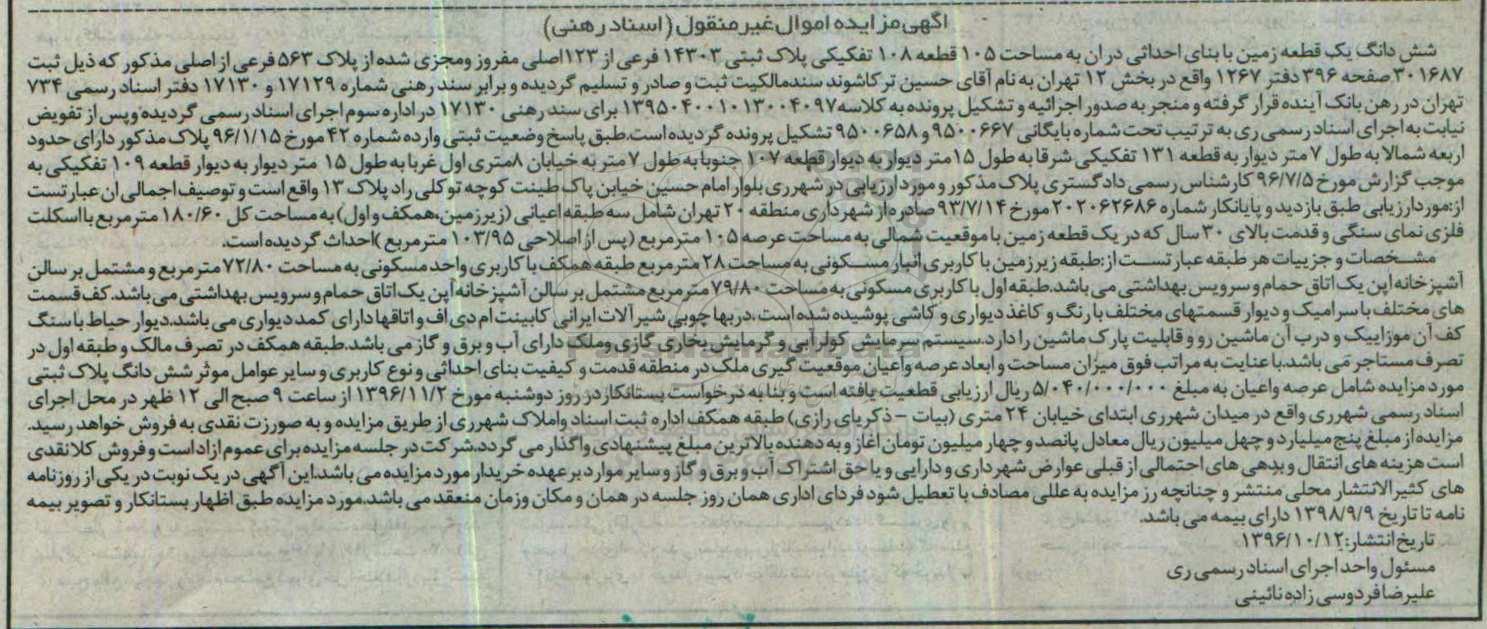 آگهی مزایده اموال غیر منقول (اسناد رهنی)
شش دانگ یک قطعه زمین با بنای احداثی در ان به مساحت ۱۰۵ قطعه ۱۰۸ تفکیکی پلاک ثبتی ۱۴۳۰۳ فرعی از ۱۲۳اصلی مفروز ومجزی شده از پلاک ۵۶۳ فرعی از اصلی مذکور که ذیل ثبت
۳۰۱۶۸۷ صفحه ۳۹۶ دفتر ۱۲۶۷ واقع در بخش ۱۲ تهران به نام آقای حسین ترکاشوند سندمالکیت ثبت و صادر و تسلیم گردیده و برابر سند رهنی شماره ۱۷۱۲۹ و ۱۷۱۳۰ دفتر اسناد رسمی ۷۳۴
تهران در رهن بانک آینده قرار گرفته و منجر به صدور اجرائیه و تشکیل پرونده به کلاسه ۱۳۹۵۰۴۰۰۱۰۱۳۰۰۴۰۹۷ برای سند رهنی ۱۷۱۳۰ در اداره سوم اجرای اسناد رسمی گردیده وپس از تفویض
نیابت به اجرای اسناد رسمی ری به ترتیب تحت شماره بایگانی ۹۵۰۰۶۶۷ و ۹۵۰۰۶۵۸ تشکیل پرونده گردیده است.طبق پاسخ وضعیت ثبتی وارده شماره ۴۲ مورخ ۹۶/۱/۱۵ پلاک مذکور دارای حدود
اربعه شمالا به طول ۷ متر دیوار به قطعه ۱۳۱ تفکیکی شرقا به طول ۱۵ متر دیوار به دیوار قطعه ۱۰۷ جنوبا به طول ۷ متر به خیابان ۸متری اول غربا به طول ۱۵ متر دیوار به دیوار قطعه ۱۰۹ تفکیکی به
موجب گزارش مورخ ۹۶/۷/۵ کارشناس رسمی دادگستری پلاک مذکور و مورد ارزیابی در شهرری بلوار امام حسین خیابن پاک طینت کوچه توکلی راد پلاک ۱۳ واقع است و توصیف اجمالی ان عبارتست
از:موردارزیابی طبق بازدید و پایانکار شماره ۲۰۲۰۶۲۶۸۶ مورخ ۹۳/۷/۱۴ صادره از شهرداری منطقه ۲۰ تهران شامل سه طبقه اعیانی (زیرزمین،همکف و اول) به مساحت کل ۱۸۰/۶۰ مترمربع با اسکلت
فلزی نمای سنگی و قدمت بالای ۳۰ سال که در یک قطعه زمین با موقعیت شمالی به مساحت عرصه ۱۰۵ مترمربع (پس از اصلاحی ۱۰۳/۹۵ مترمربع )احداث گردیده است.
مشخصات و جزییات هر طبقه عبارتست از:طبقه زیرزمین با کاربری انبار مسکونی به مساحت ۲۸ مترمربع طبقه همکف با کاربری واحد مسکونی به مساحت ۷۲/۸۰ مترمربع و مشتمل بر سالن
آشپزخانه اپن یک اتاق حمام و سرویس بهداشتی می باشد.طبقه اول با کاربری مسکونی به مساحت ۷۹/۸۰ مترمربع مشتمل بر سالن آشپزخانه اپن یک اتاق حمام و سرویس بهداشتی می باشد.کف قسمت
های مختلف با سرامیک و دیوار قسمتهای مختلف با رنگ و کاغذ دیواری و کاشی پوشیده شده است،دربها چوبی شیرآلات ایرانی کابینت ام دی اف و اتاقها دارای کمد دیواری می باشد.دیوار حیاط با سنگ
کف آن موزاییک و درب آن ماشین رو و قابلیت پارک ماشین را دارد.سیستم سرمایش کولرآبی و گرمایش بخاری گازی وملک دارای آب و برق و گاز می باشد.طبقه همکف در تصرف مالک و طبقه اول در
تصرف مستاجر می باشد.با عنایت به مراتب فوق میزان مساحت و ابعاد عرصه واعیان موقعیت گیری ملک در منطقه قدمت و کیفیت بنای احداثی و نوع کاربری و سایر عوامل موثر شش دانگ پلاک ثبتی
مورد مزایده شامل عرصه واعیان به مبلغ ۵/۰۴۰/۰۰۰/۰۰۰ ریال ارزیابی قطعیت یافته است و بنا به درخواست بستانکار در روز دوشنبه مورخ ۱۳۹۶/۱۱/۲ از ساعت ۹ صبح الی ۱۲ ظهر در محل اجرای
اسناد رسمی شهرری واقع در میدان شهرری ابتدای خیابان ۲۴ متری (بیات – ذکریای رازی) طبقه همکف اداره ثبت اسناد واملاک شهرری از طریق مزایده و به صورزت نقدی به فروش خواهد رسید.
مزایده از مبلغ پنج میلیارد و چهل میلیون ریال معادل پانصد و چهار میلیون تومان آغاز و به دهنده بالاترین مبلغ پیشنهادی واگذار می گردد.شرکت در جلسه مزایده برای عموم ازاد است و فروش کلا نقدی
است هزینه های انتقال و بدهی های احتمالی از قبلی عوارض شهرداری و دارایی و یا حق اشتراک آب و برق و گاز و سایر موارد بر عهده خریدار مورد مزایده می باشد.این آگهی در یک نوبت در یکی از روزنامه
های کثیرالانتشار محلی منتشر و چنانچه رز مزایده به عللی مصادف با تعطیل شود فردای اداری همان روز جلسه در همان و مکان وزمان منعقد می باشد.مورد مزایده طبق اظهار بستانکار و تصویر بیمه
نامه تا تاریخ ۱۳۹۸/۹/۹ دارای بیمه می باشد.
تاریخ انتشار:۱۳۹۶/۱۰/۱۲
مسئول واحد اجرای اسناد رسمی ری
علیرضا فردوسی زاده نائینی